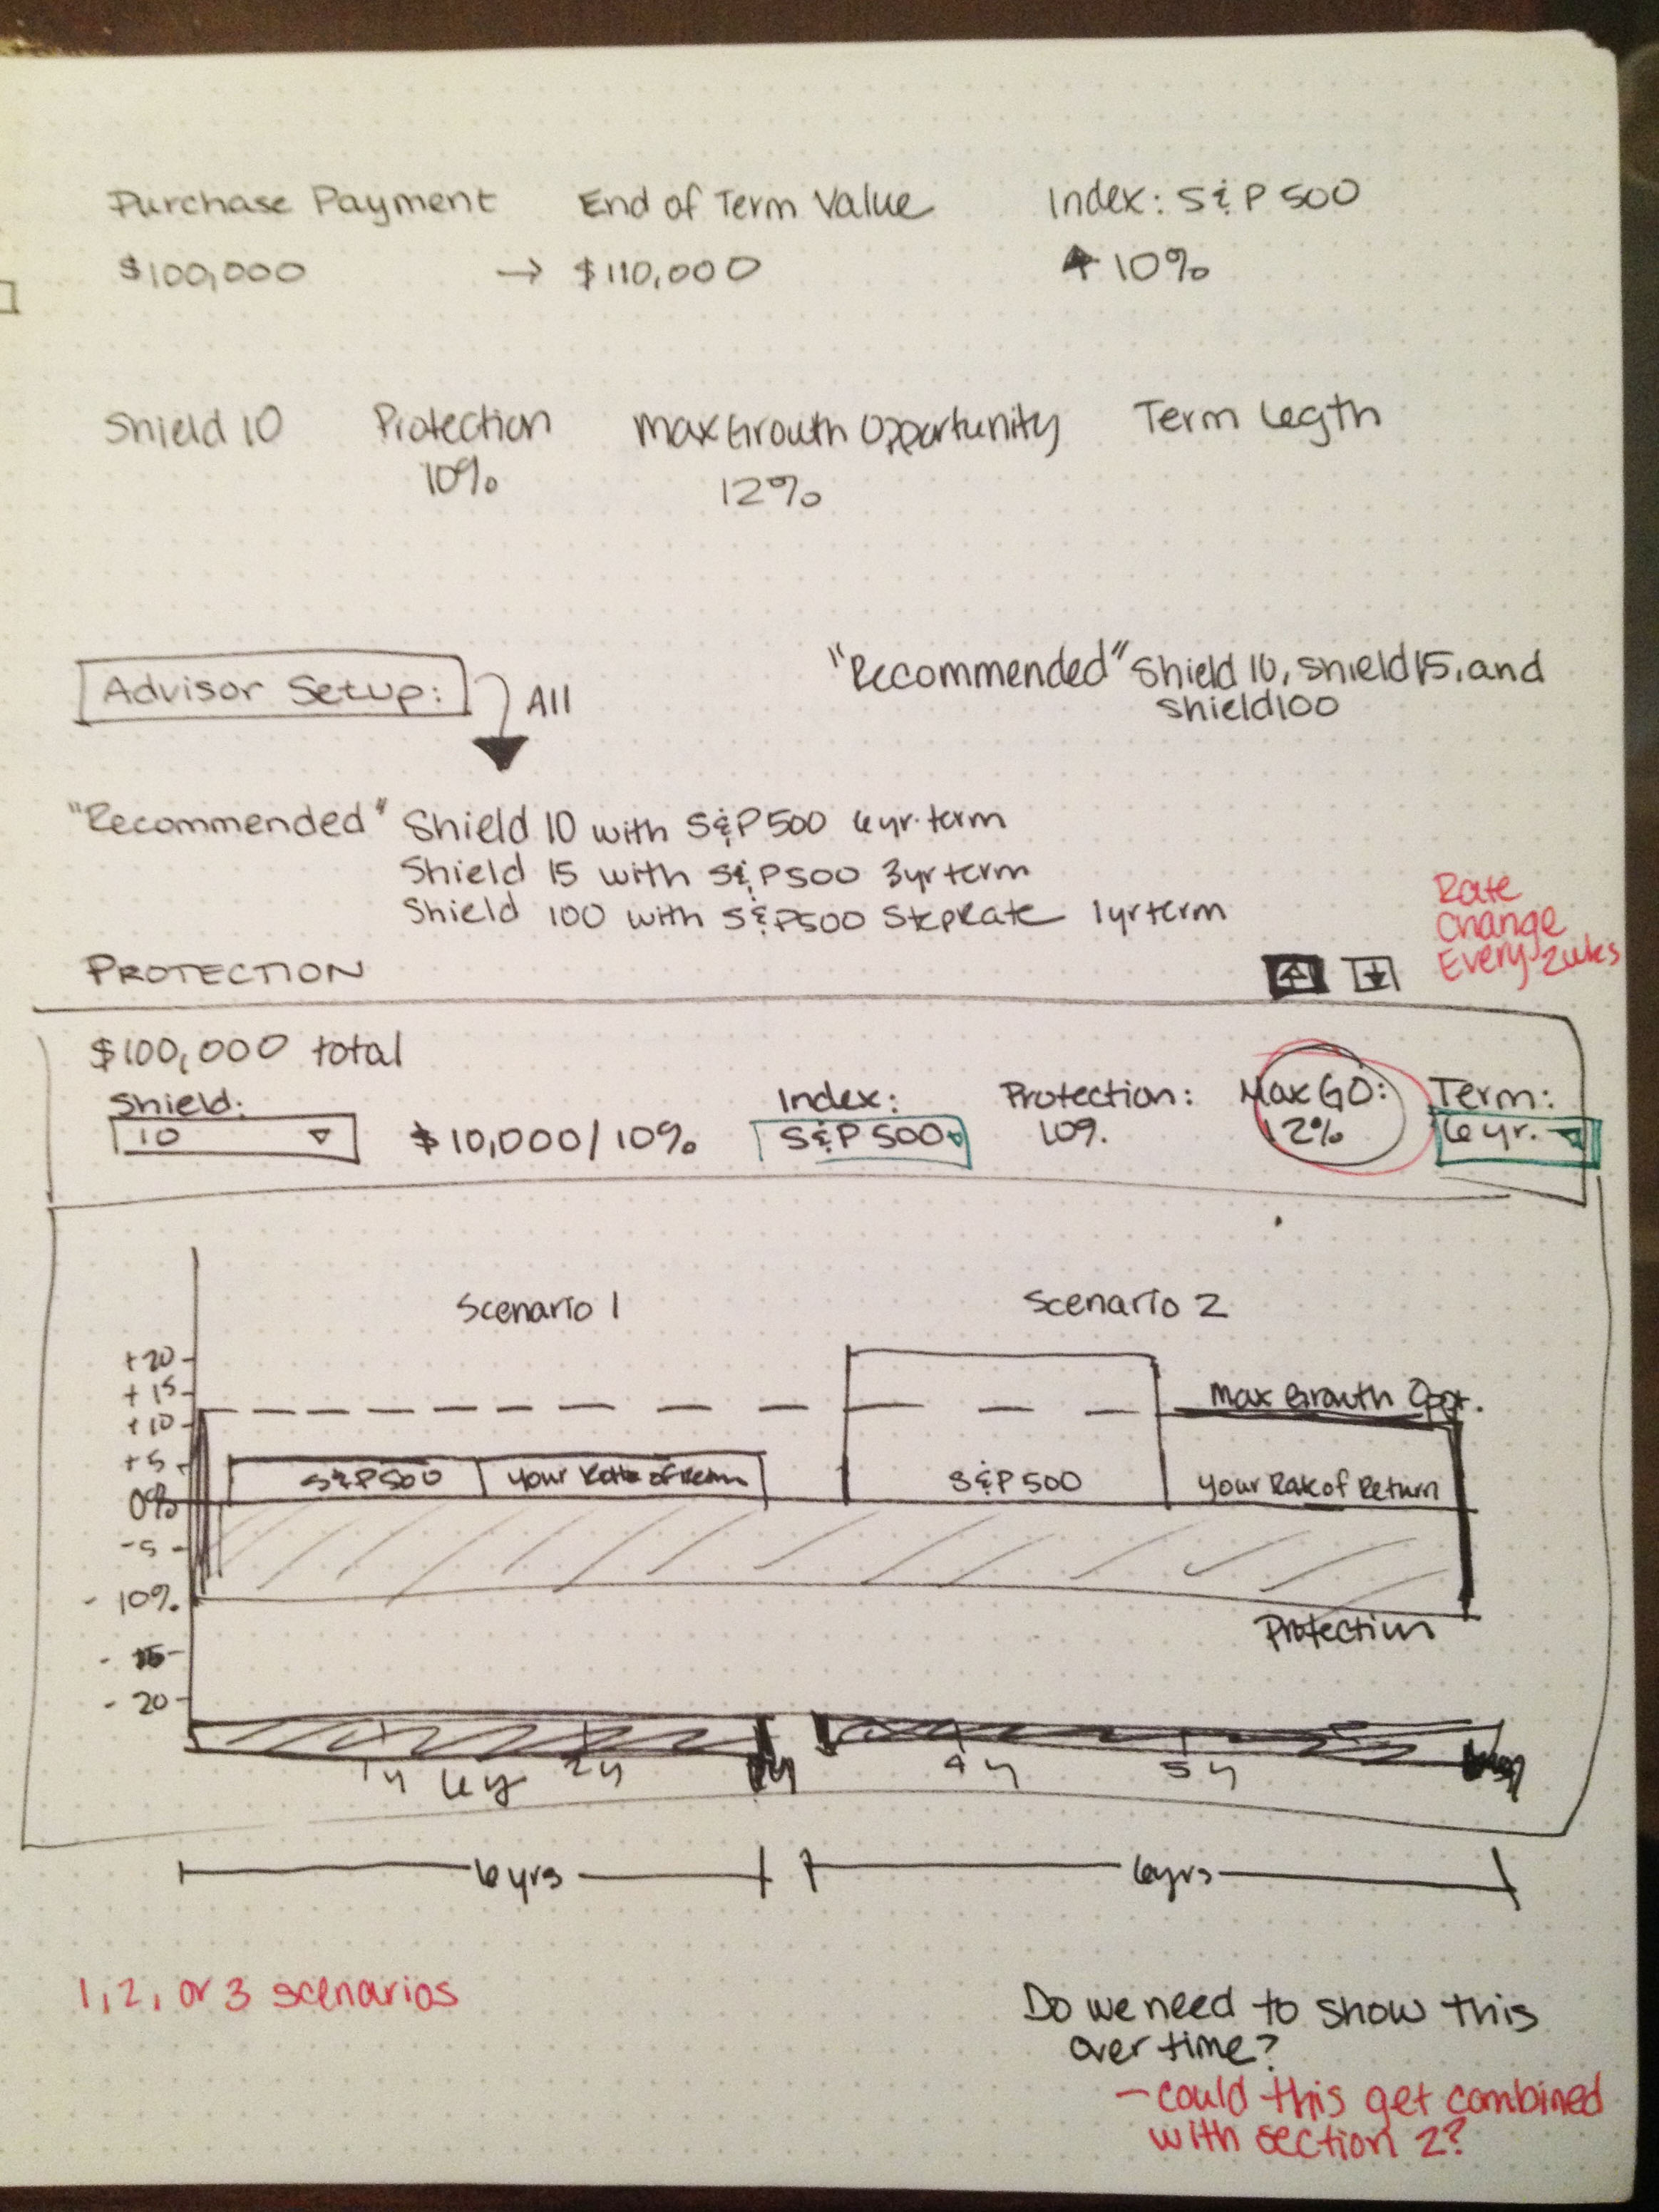 Purchase Payment End of Term Value Index: S&P 500
$100,000 → $110,000 10%
Shield 10 Protection Max Growth Opportunity Term Legth
10% 12%
Advisor Setup: All
"Recommended" Shield 10, Shield 15, and
Shield 100
"Recommended" Shield 10 with S&P 500 6yr. term
Shield 15 with S&P 500 3yr term
Shield 100 with S&P500 Step Rate 1yr term
Rate
Change
Every 2wks
PROTECTION
$100,000 total
Shield: Index: Protection: Max GO: Term:
10 $10,000/10% S&P 500 10%. 12% 6yr.
Scenario 1 Scenario 2
+20
+15
+10
+5
0%
-5
-10%
-15
-20
Max Growth Oppt.
S&P 500 Your Rate of Return S&P 500 Your Rate of Return
Protection
1y 6y 2y 4y 5y
6yrs 6yrs
1, 2, or 3 scenarios
Do we need to show this
over time?
- could this get combined
with section 2?